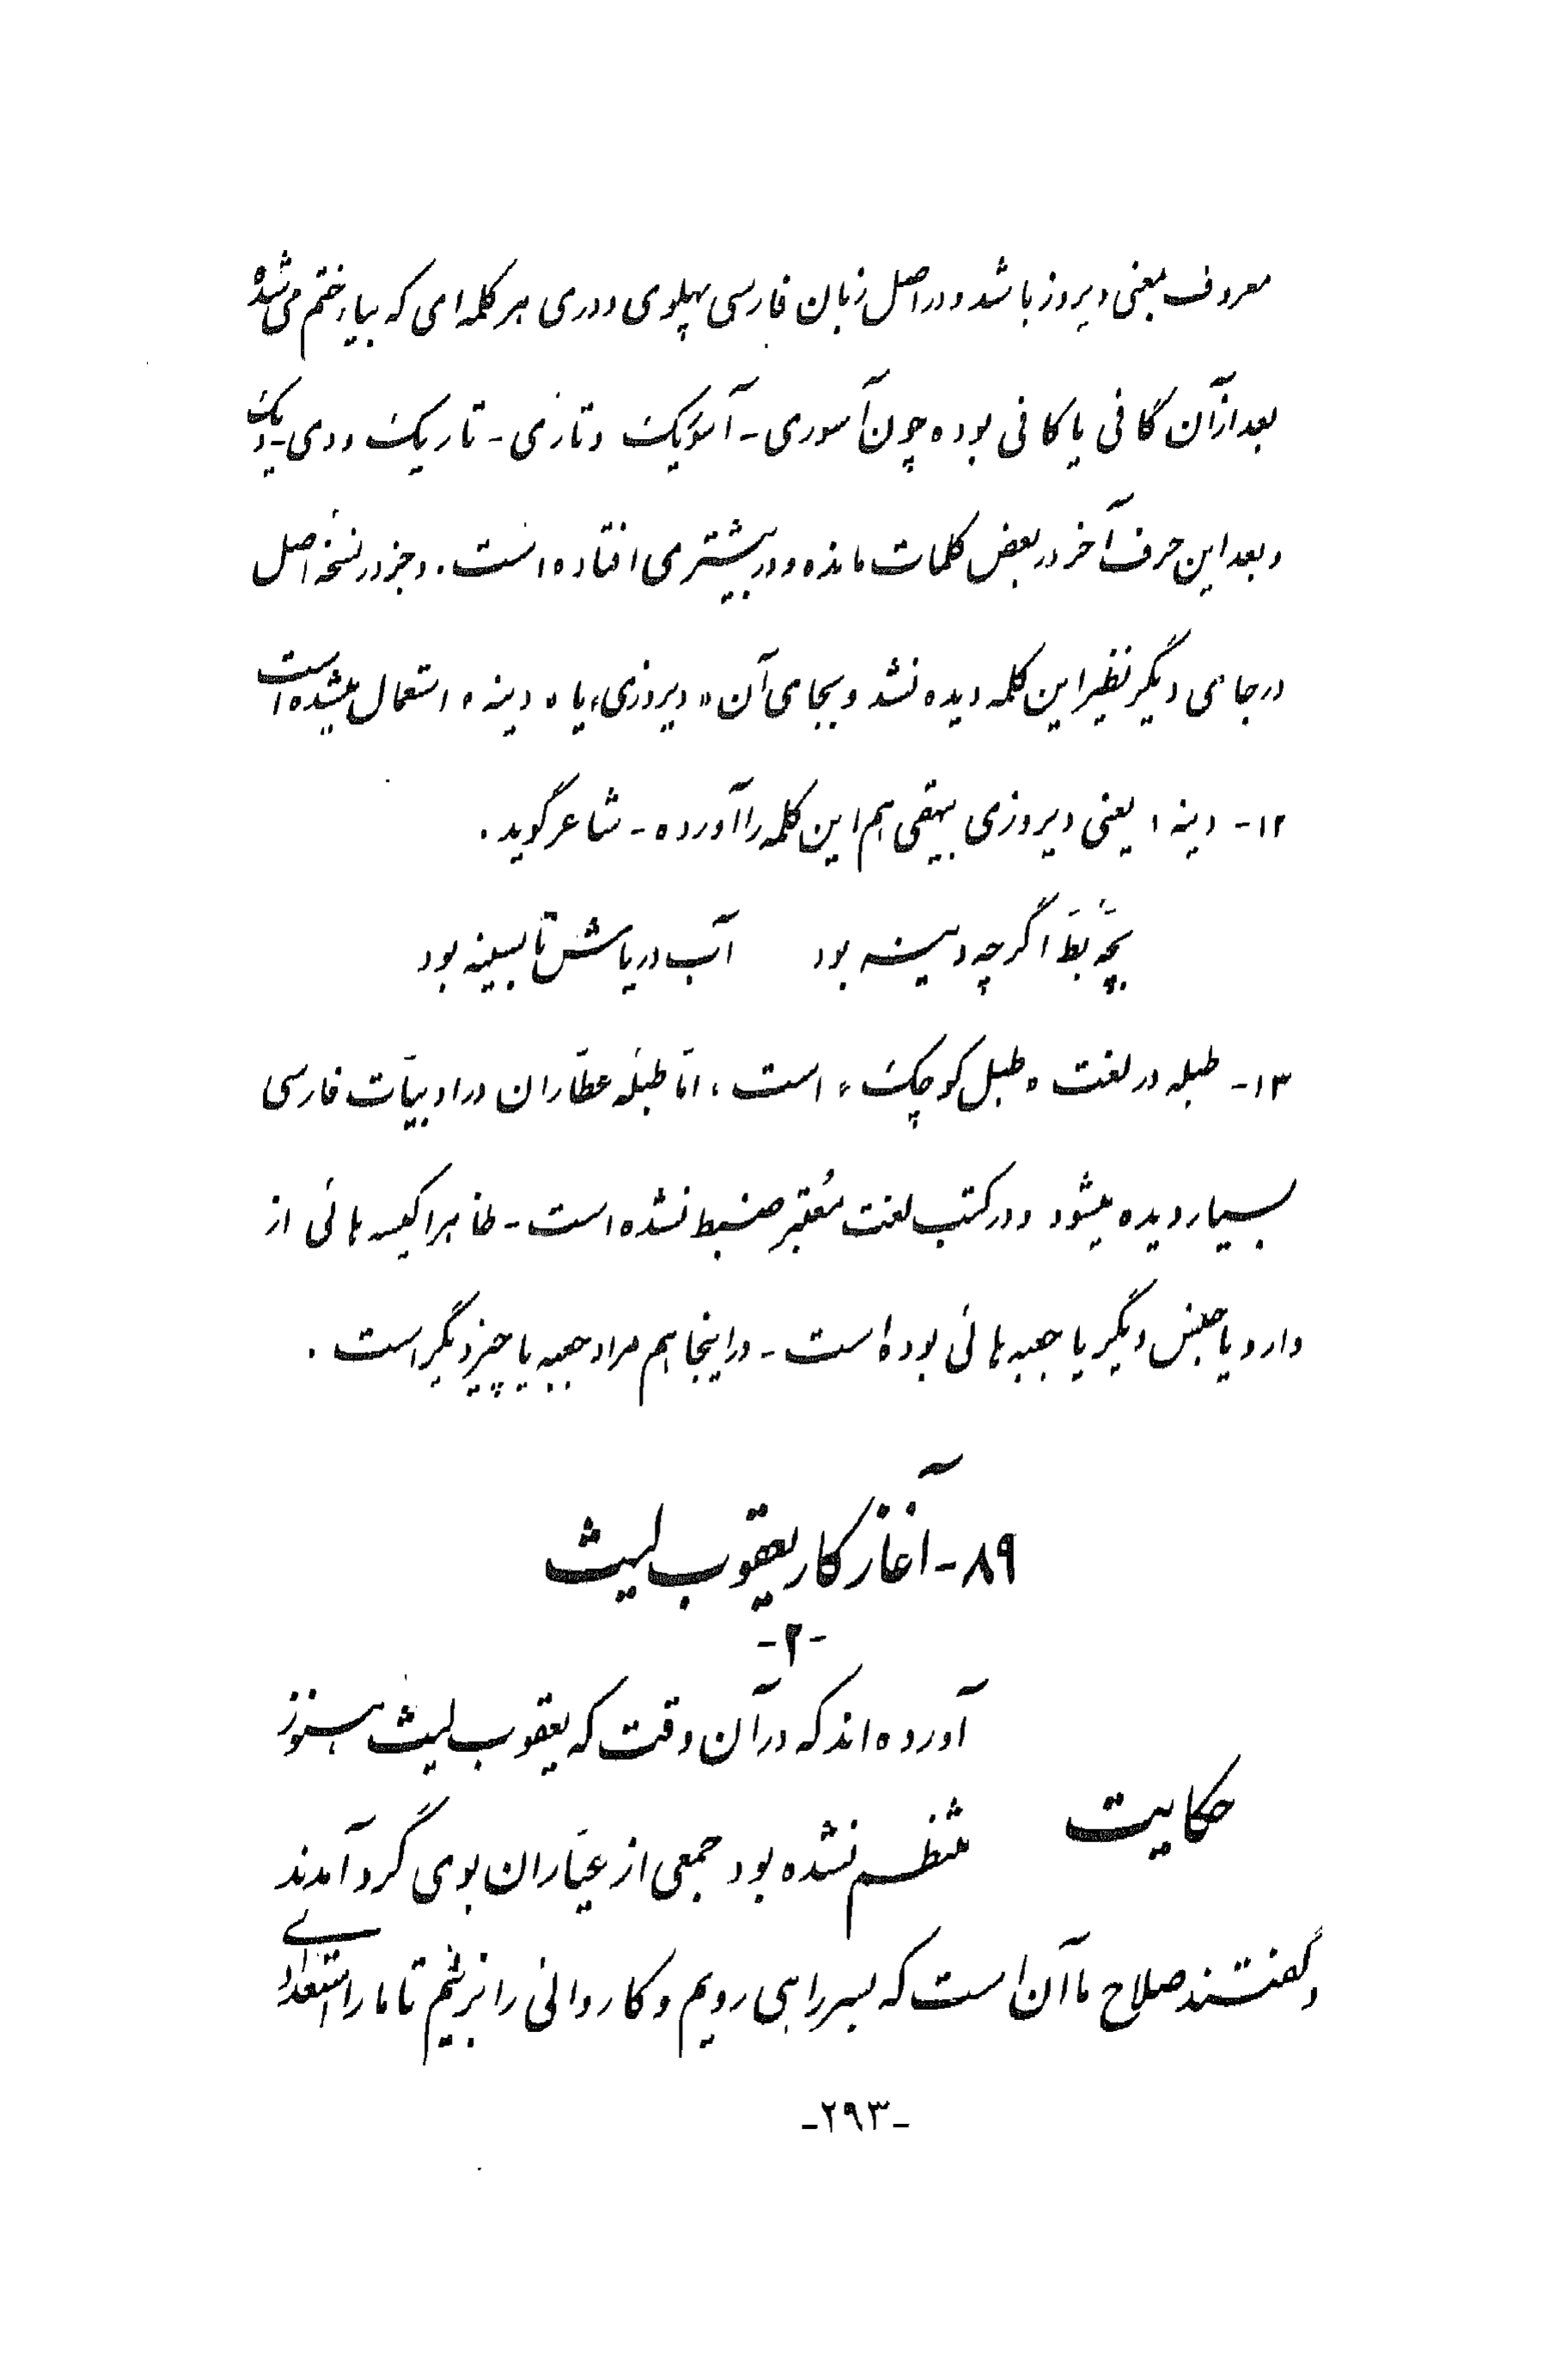 معروف بمعنی دیروز باشد و در اصل زبان فارسی پهلوی و دری هر کلمه‌ای که بیاء ختم می‌شده
بعد از آن گافی یا کافی بوده چون آسوری - آسوریک و تازی - تازیک و دی - دیک
و بعد این حرف آخر در بعض کلمات مانده و در بیشتری افتاده است. و جز در نسخهٔ اصل
در جای دیگر نظیر این کلمه دیده نشد و بجای آن «دیروزی» یا «دینه» استعمال میشده است
۱۲- دینه: یعنی دیروزی بیهقی هم این کلمه را آورده - شاعر گوید.
بچّهٔ بطّ اگرچه دینه بود آب دریاش تا بسینه بود
۱۳- طبله در لغت «طبل کوچک» است، امّا طبلهٔ عطّاران در ادبیّات فارسی
بسیار دیده میشود و در کتب لغت مُعتبر ضبط نشده است - ظاهرا کیسه‌هائی از
دارو یا جنس دیگر یا جعبه‌هائی بوده است - در اینجا هم مراد جعبه یا چیز دیگر است.
۸۹- آغاز کار یعقوب لیث
-۲-
حکایت
آورده‌اند که در آن وقت که یعقوب لیث هنوز
منتظم نشده بود جمعی از عیّاران بوی گرد آمدند
و گفتند صلاح ما آن است که بسر راهی رویم و کاروانی را بزنیم تا ما را استعدادی
-۲۹۳-